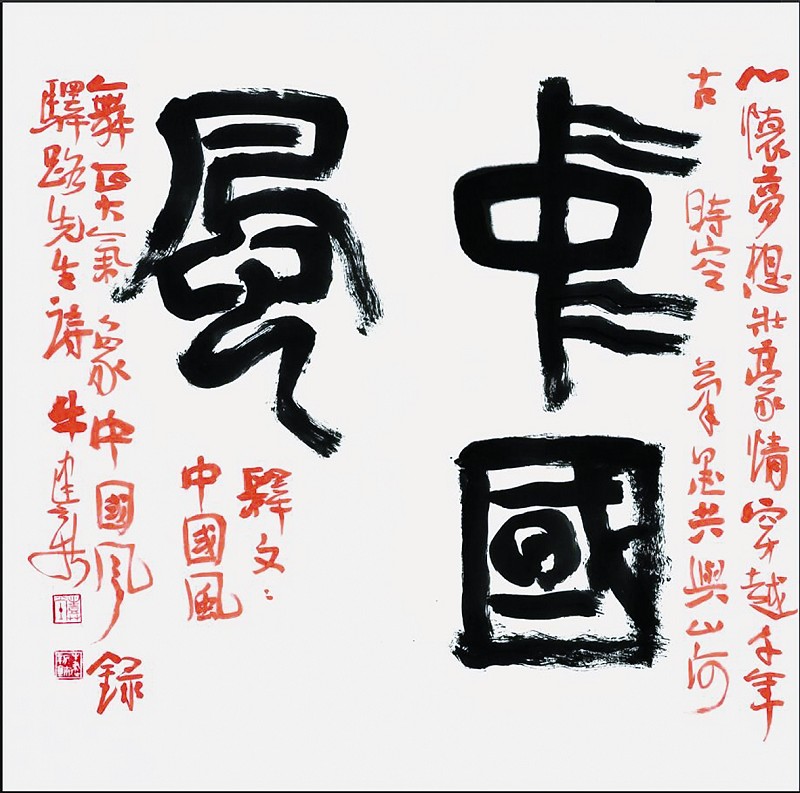 心懷夢想壯豪情穿越千年
古時空筆墨共與山河
中國
風
釋文：
中國風
舞正大氣象中國風錄
驛路先生詩牛建